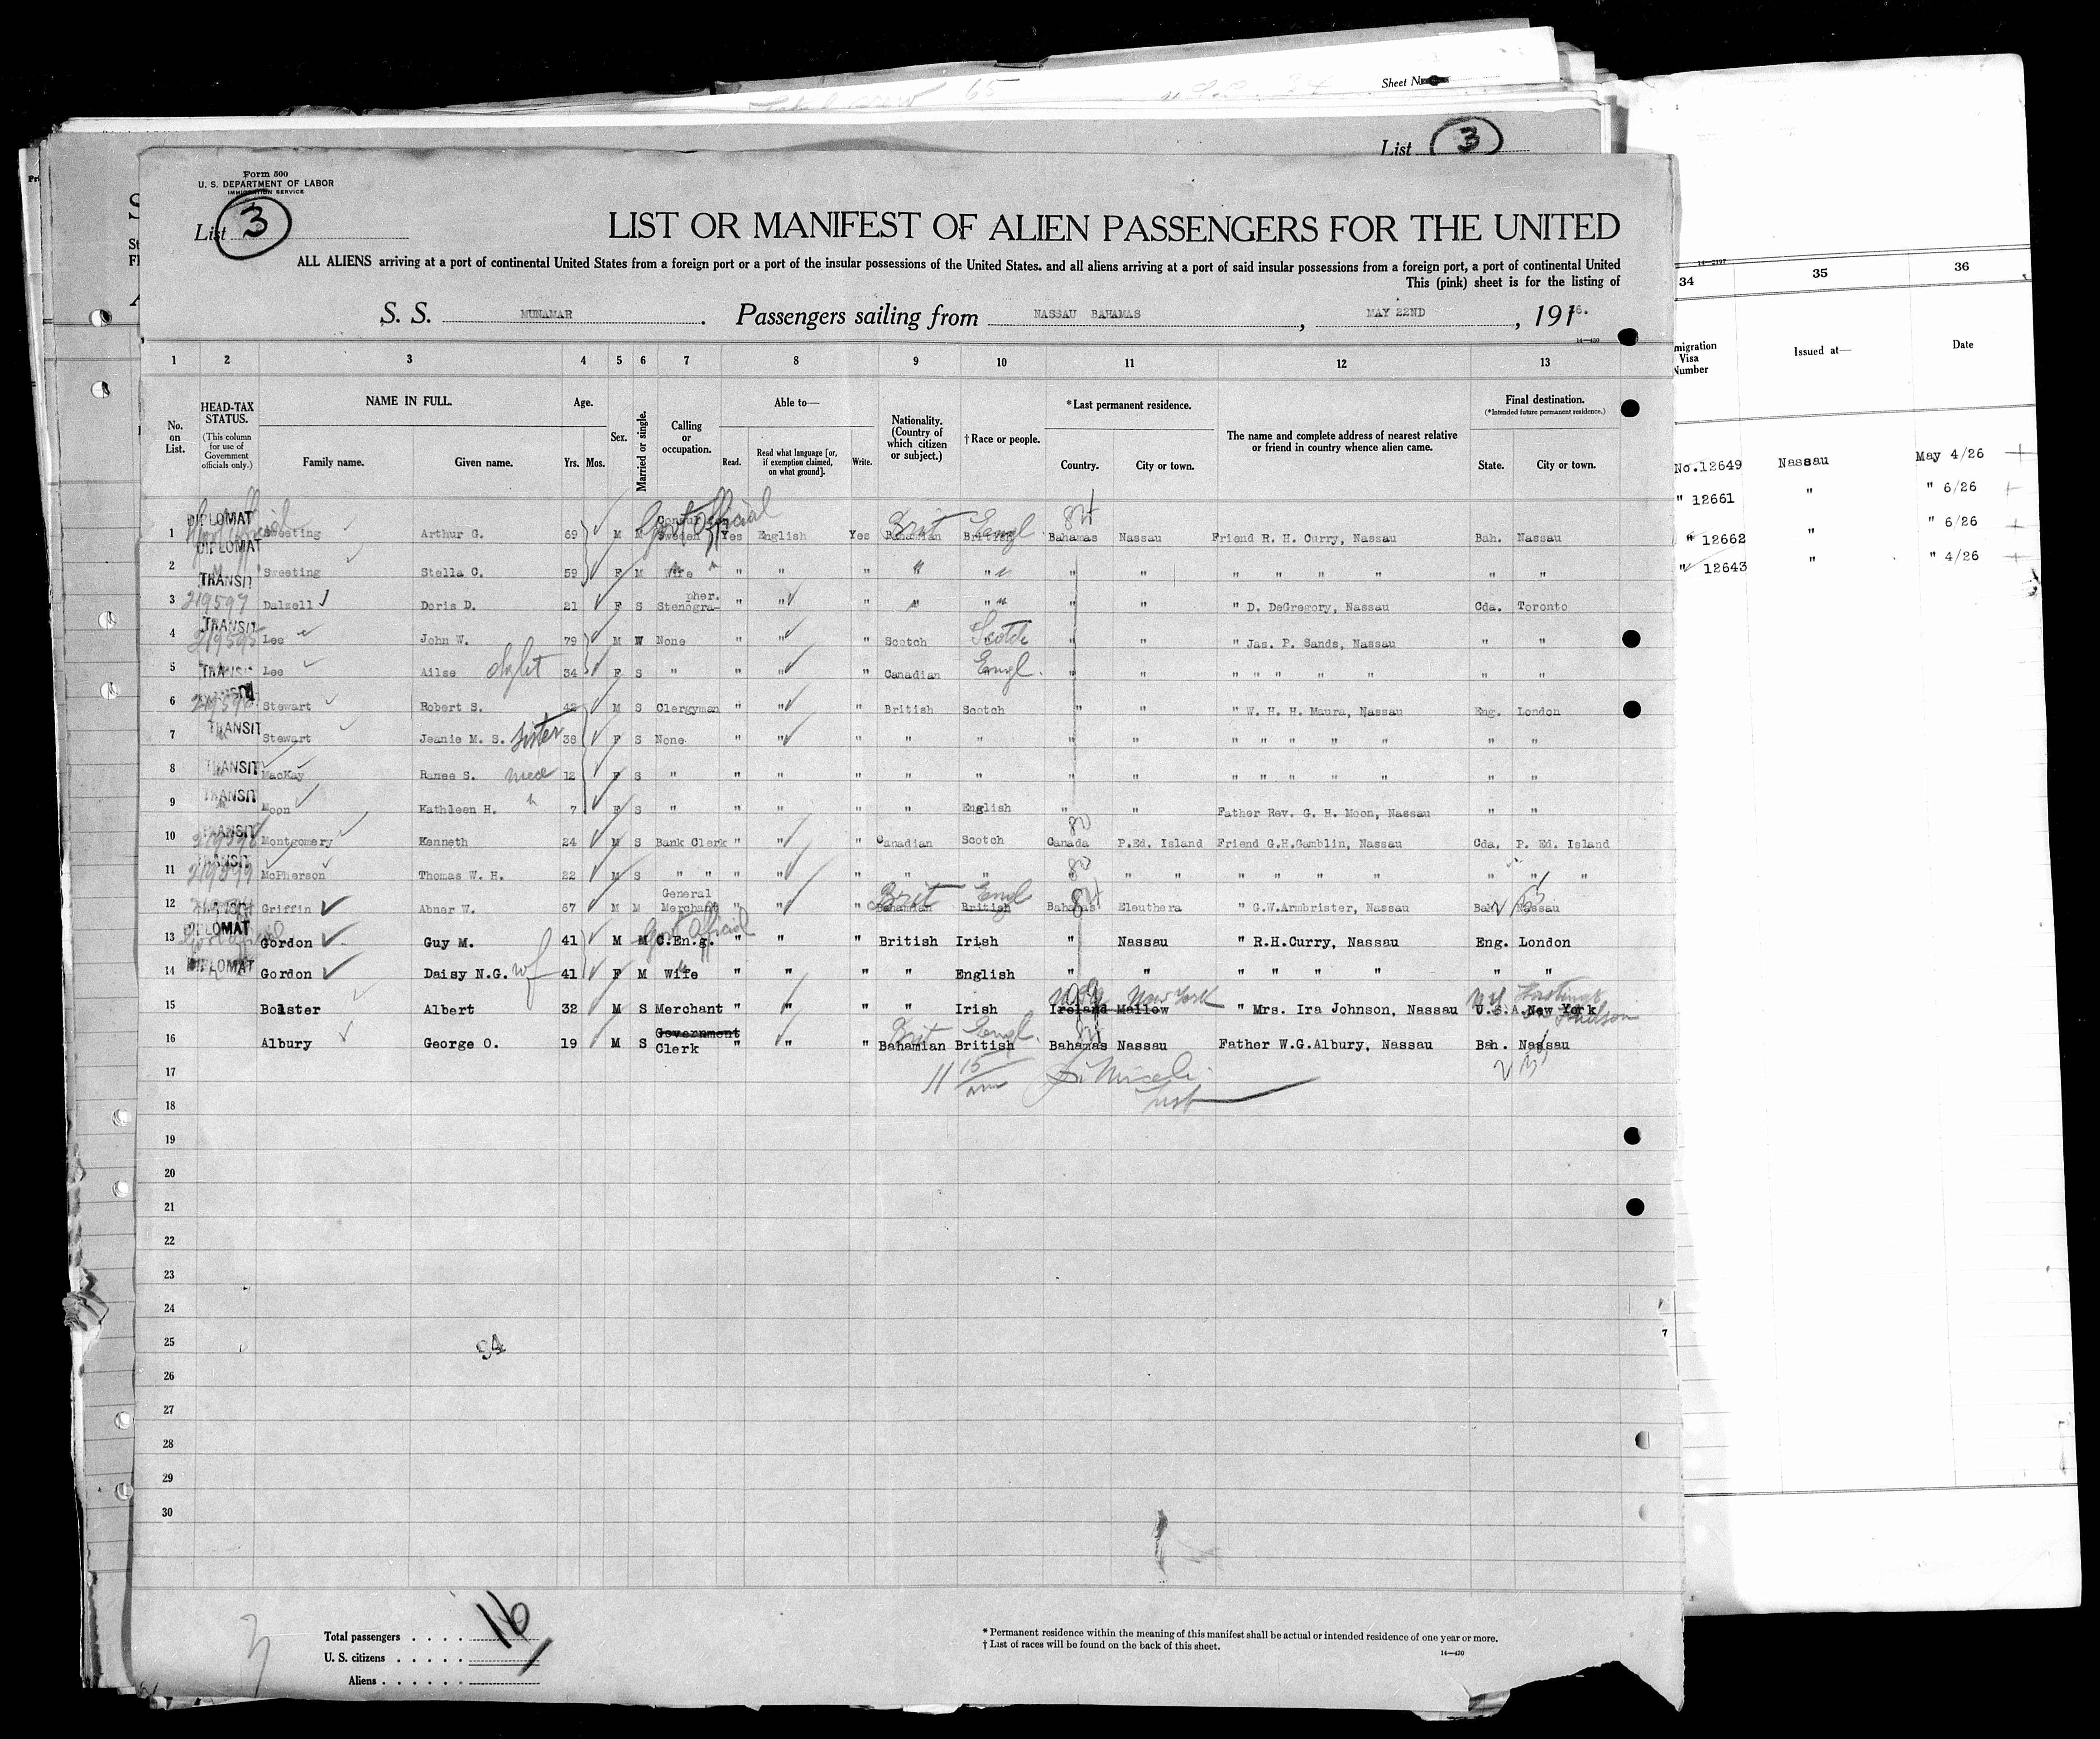 Sheet No.
List 3
Form 500
U. S. DEPARTMENT OF LABOR
IMMIGRATION SERVICE
List 3
LIST OR MANIFEST OF ALIEN PASSENGERS FOR THE UNITED
ALL ALIENS arriving at a port of continental United States from a foreign port or a port of the insular possessions of the United States. and all aliens arriving at a port of said insular possessions from a foreign port, a port of continental United
This (pink) sheet is for the listing of
S. S. MUNAMAR. Passengers sailing from NASSAU BAHAMAS, MAY 22ND, 19126.
14—430
1 2 3 4 5 6 7 8 9 10 11 12 13
No. on List.
HEAD-TAX STATUS. (This column for use of Government officials only.)
NAME IN FULL.
Family name. Given name.
Age. Yrs. Mos.
Sex.
Married or single.
Calling or occupation.
Able to—
Read. Read what language [or, if exemption claimed, on what ground]. Write.
Nationality. (Country of which citizen or subject.)
†Race or people.
*Last permanent residence.
Country. City or town.
The name and complete address of nearest relative or friend in country whence alien came.
Final destination.
(*Intended future permanent residence.)
State. City or town.
1 DIPLOMAT Sweeting Arthur G. 69 M M Consul Sweden Govt Official Yes English Yes Bahamian Brit British Engl Bahamas 84 Nassau Friend R. H. Curry, Nassau Bah. Nassau
2 DIPLOMAT Sweeting Stella C. 59 F M Wife " " " " " " " " " " " " "
3 TRANSIT 219597 Dalzell Doris D. 21 F S Stenogra-pher. " " " " " " " " D. DeGregory, Nassau Cda. Toronto
4 TRANSIT 219595 Lee John W. 79 M W None " " " Scotch Scotch " " " Jas. P. Sands, Nassau " "
5 TRANSIT Lee Ailse 34 F S " " " " Canadian Engl. " " " " " " " " "
6 Stewart Robert S. 42 M S Clergyman " " " British Scotch " " " W. H. H. Maura, Nassau Eng. London
7 TRANSIT Stewart Jeanie M. S. sister 38 F S None " " " " " " " " " " " " " "
8 TRANSIT MacKay Ranee S. niece 12 F S " " " " " " " " " " " " " " "
9 TRANSIT Moon Kathleen H. " 7 F S " " " " " English " " Father Rev. G. H. Moon, Nassau " "
10 TRANSIT 219598 Montgomery Kenneth 24 M S Bank Clerk " " " Canadian Scotch Canada 80 P.Ed. Island Friend G.H.Gamblin, Nassau Cda. P. Ed. Island
11 TRANSIT 219599 McPherson Thomas W. H. 22 M S " " " " " " " " 80 " " " " " " " " "
12 TRANSIT Griffin Abner W. 67 M M General Merchant " " " Bahamian Brit British Engl Bahamas 84 Eleuthera " G.W.Armbrister, Nassau Bah. Nassau
13 DIPLOMAT Gordon Guy M. 41 M M C.En.g. Govt Official " " " British Irish " Nassau " R.H.Curry, Nassau Eng. London
14 DIPLOMAT Gordon Daisy N.G. wf 41 F M Wife " " " " English " " " " " " " "
15 Bolster Albert 32 M S Merchant " " " " Irish Ireland Mallow New York " Mrs. Ira Johnson, Nassau U.S.A. New York NY Hastings Hudson
16 Albury George O. 19 M S Government Clerk " " " Bahamian Brit British Engl. Bahamas 84 Nassau Father W.G.Albury, Nassau Bah. Nassau
17 11 15 am
18
19
20
21
22
23
24
25
26
27
28
29
30
94
Total passengers . . . . 16
U. S. citizens . . . . .
Aliens . . . . . .
* Permanent residence within the meaning of this manifest shall be actual or intended residence of one year or more.
† List of races will be found on the back of this sheet.
14—430
14—2197
34 35 36
migration Visa Number Issued at— Date
No.12649 Nassau May 4/26
" 12661 " " 6/26
" 12662 " " 6/26
" 12643 " " 4/26
7